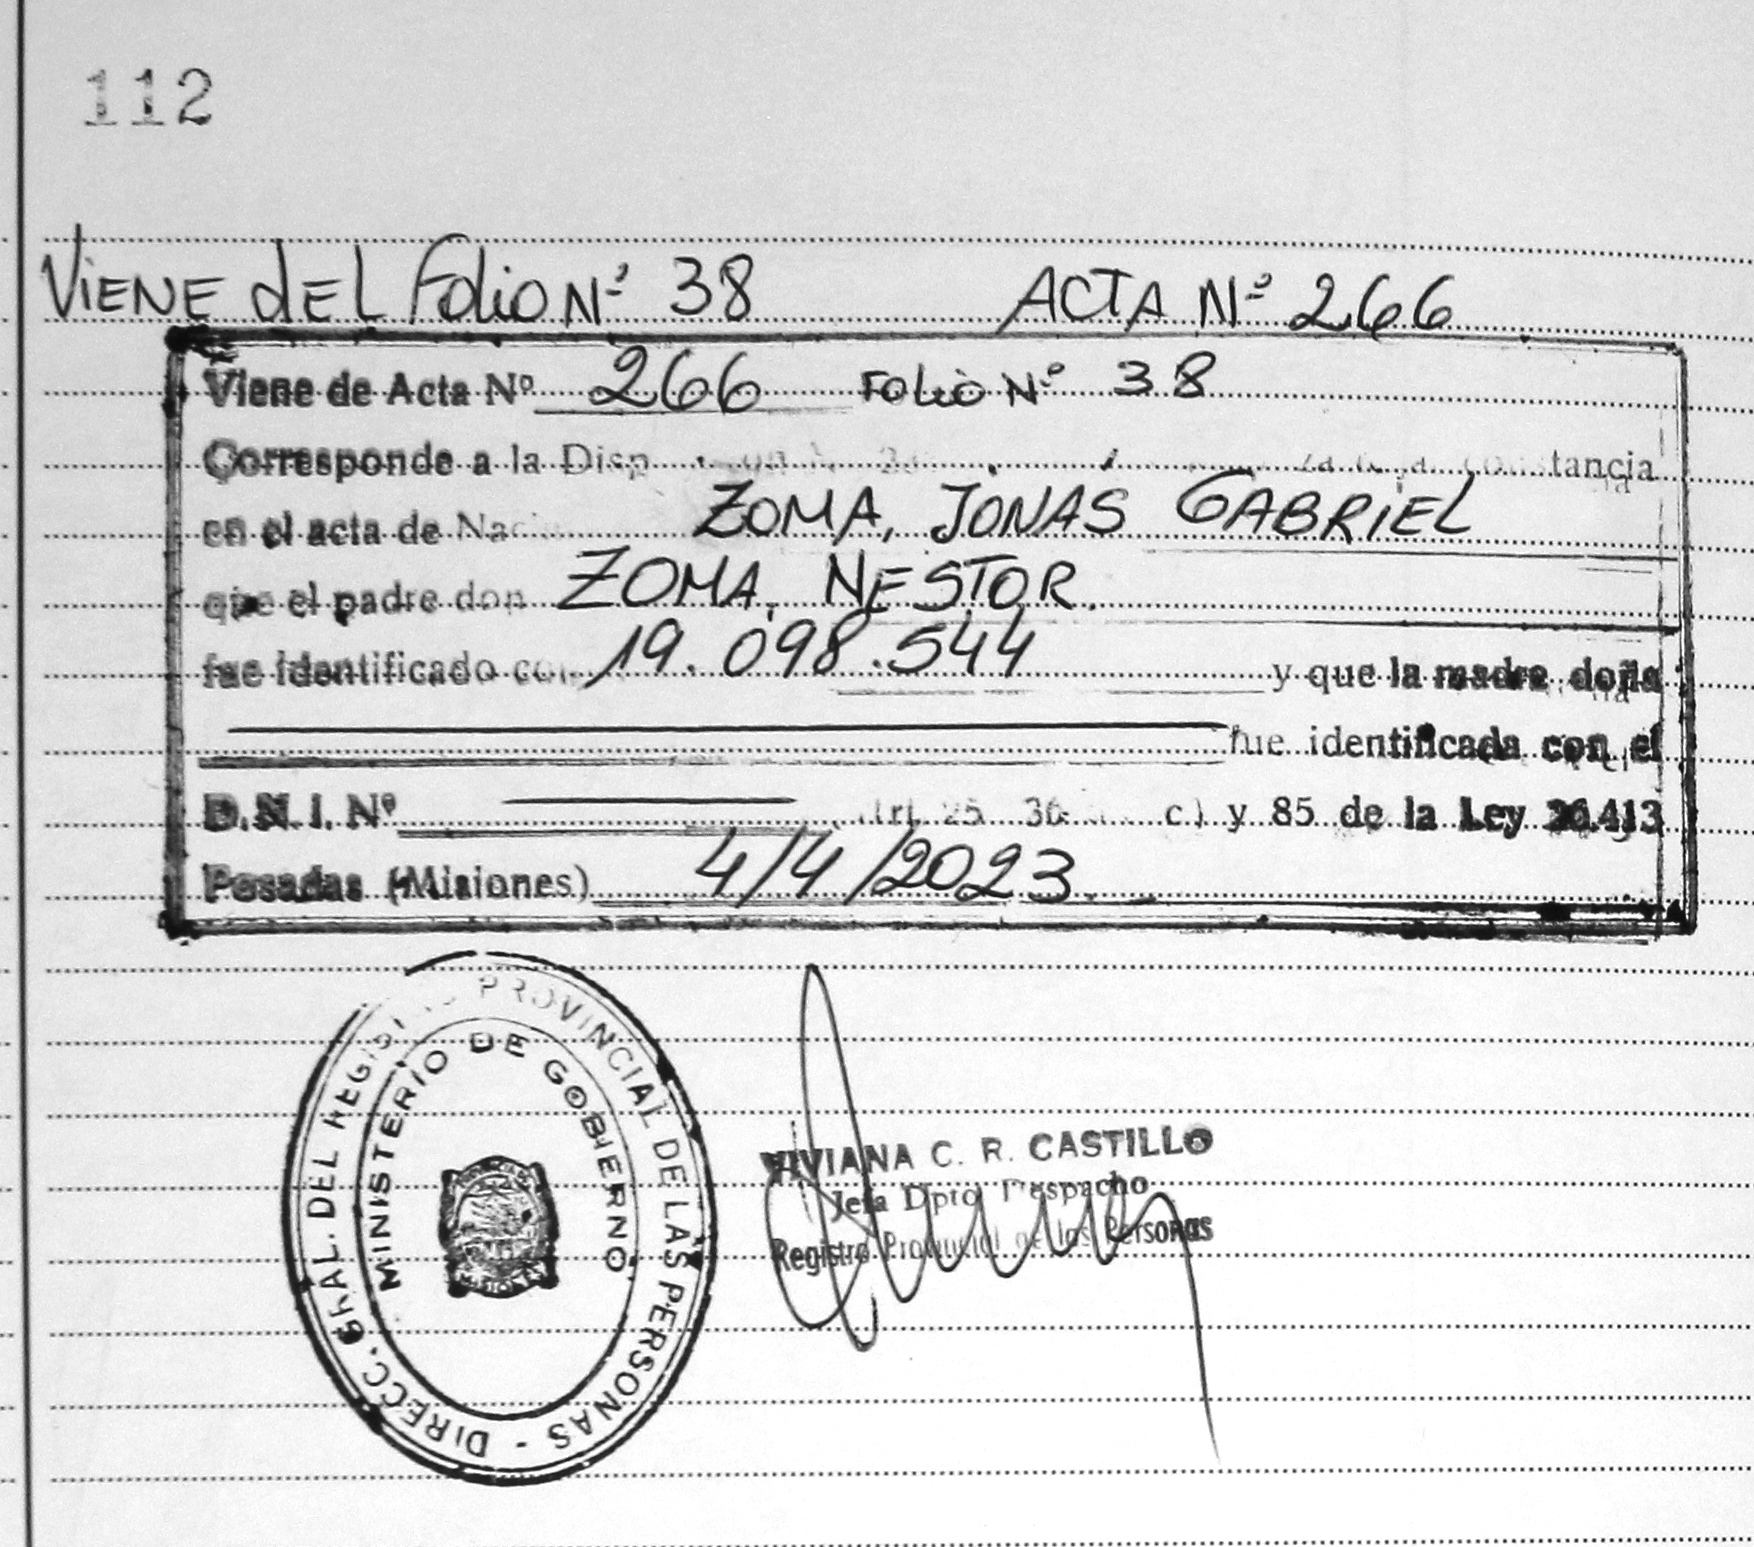 112
ViENE dEL Folio Nº 38 ACTA Nº 266
Viene de Acta Nº 266 FOLiO Nº 38
Corresponde a la constancia
en el acta de ZOMA, JONAS GABRiEL
que el padre don ZOMA, NESTOR.
fue identificado 19.098.544 y que la madre doña
fue identificada con el
D.N.I. Nº 25 36 c) y 85 de la Ley 26.413
Posadas (Misiones) 4/4/2023
DIRECC. GRAL. DEL PROVINCIAL DE LAS PERSONAS -
MINISTERIO DE GOBIERNO
VIVIANA C. R. CASTILLO
Jefa Dpto Despacho
Registro Provincial de las Personas